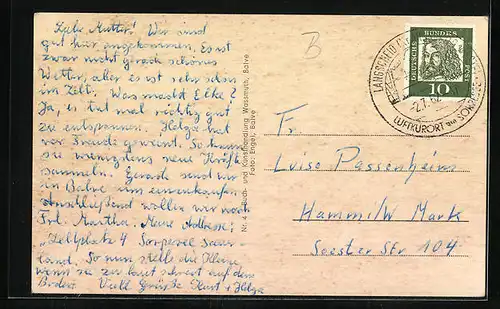 Liebe Mutter! Wir sind
gut hier angekommen. Es ist
zwar nicht gerade schönes
Wetter, aber es ist sehr schön
im Zelt. Was macht Elke?
Ja, es tut mal richtig gut
zu entspannen. Helga hat
vor Freude geweint. So kann
sie wenigstens neue Kräfte
sammeln. Gerade sind wir
in Balve um einzukaufen
anschließend wollen wir noch
Frl. Martha. Meine Adresse:
"Zeltplatz 4 Sorpesee Sauer-
land. So nun stelle die Kleine
wenn sie zu laut schreit auf den
Boden. Viele Grüße Kurt + Helga
Nr. 4 Buch- und Kunsthandlung Wassmuth, Balve
Foto: Engel, Balve
B
DEUTSCHE BUNDESPOST
10
LANGSCHEID
-2.7.62
LUFTKURORT am SORPESEE
Fr.
Luise Passenheim
Hamm i/W Mark
Soester Str. 104